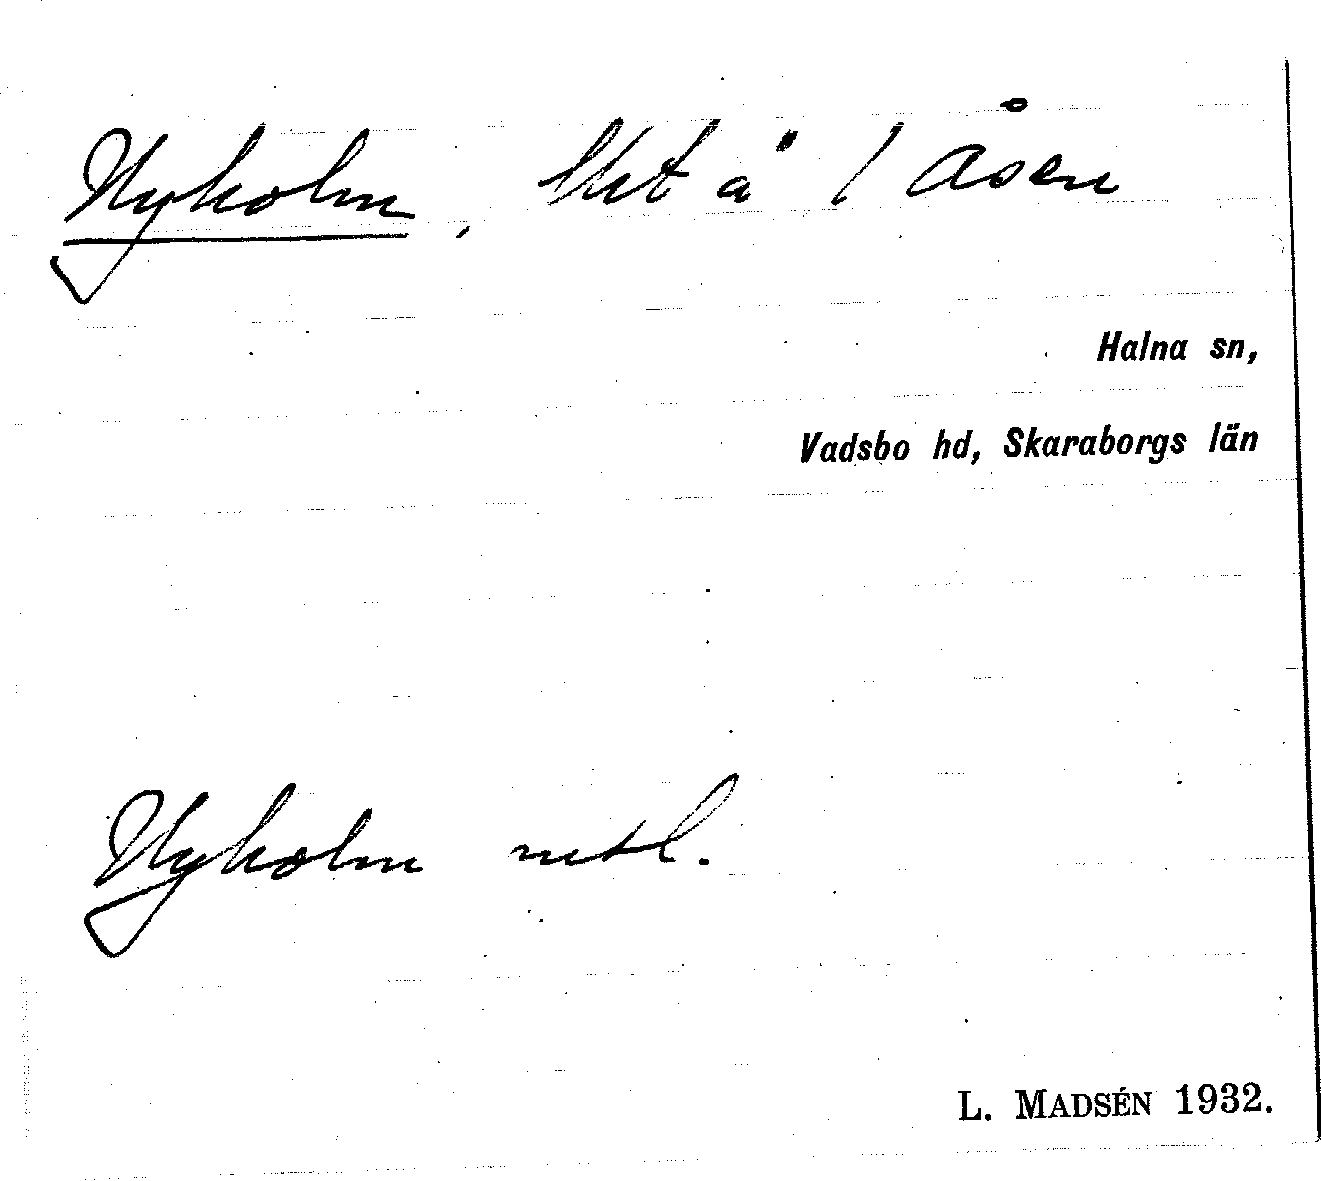 Nyholm, lht å 1 Åsen
Halna sn,
Vadsbo hd, Skaraborgs län
Nyholm mtl.
L. MADSÉN 1932.